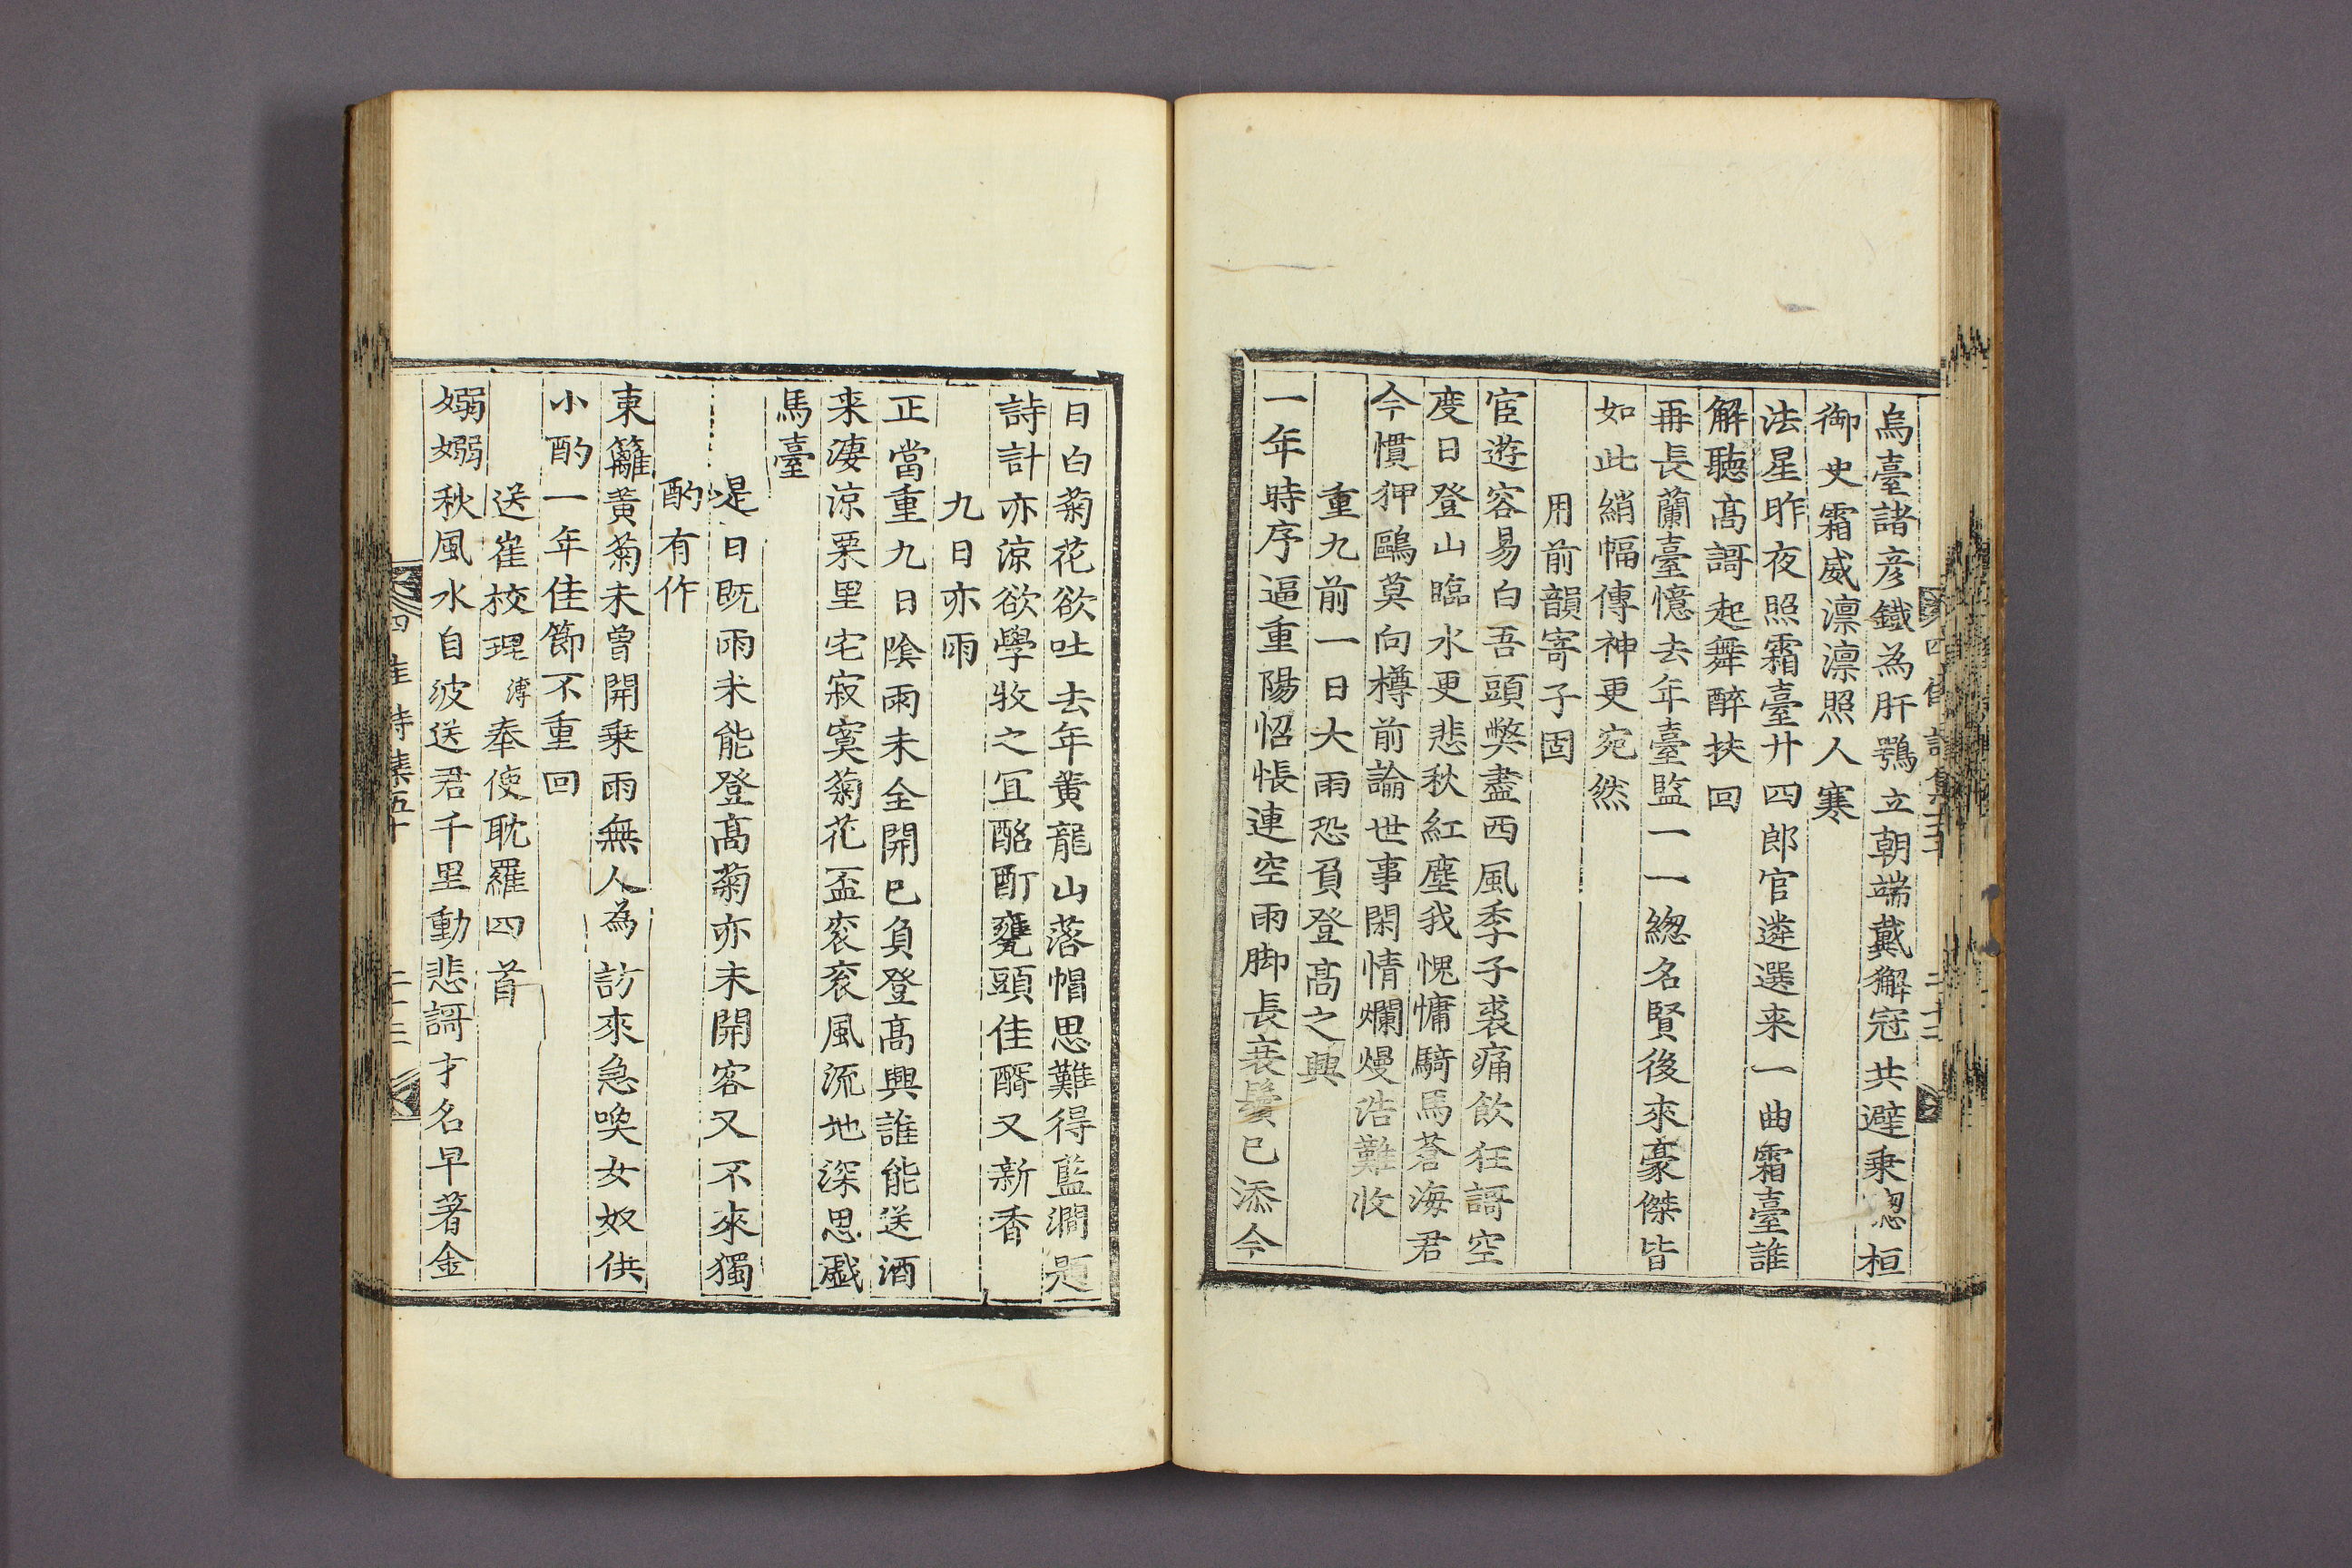 烏臺諸彦鐵為肝鶚立朝端戴獬冠共避乗驄桓
御史霜威凛凛照人寒
法星昨夜照霜臺廿四郎官遴選来一曲霜臺誰
解聴髙謌起舞醉扶回
再長蘭臺憶去年臺監一一緫名賢後來豪傑皆
如此綃幅傳神更宛然
用前韻寄子固
宦遊容易白吾頭弊盡西風季子裘痛飲狂謌空
度日登山臨水更悲秋紅塵我愧慵騎馬蒼海君
今慣狎鷗莫向樽前論世事閑情爛熳浩難收
重九前一日大雨恐負登髙之興
一年時序逼重陽怊悵連空雨脚長衰鬢已添今
日白菊花欲吐去年黄龍山落帽思難得藍澗題
詩計亦涼欲學牧之冝酩酊甕頭佳醑又新香
九日亦雨
正當重九日陰雨未全開已負登髙興誰能送酒
来凄涼栗里宅寂寞菊花盃衮衮風流地深思戲
馬臺
是日既雨未能登髙菊亦未開客又不來獨
酌有作
東籬黄菊未曽開乗雨無人為訪來急喚女奴供
小酌一年佳節不重回
送崔校理溥奉使耽羅四首
嫋嫋秋風水自波送君千里動悲謌才名早著金